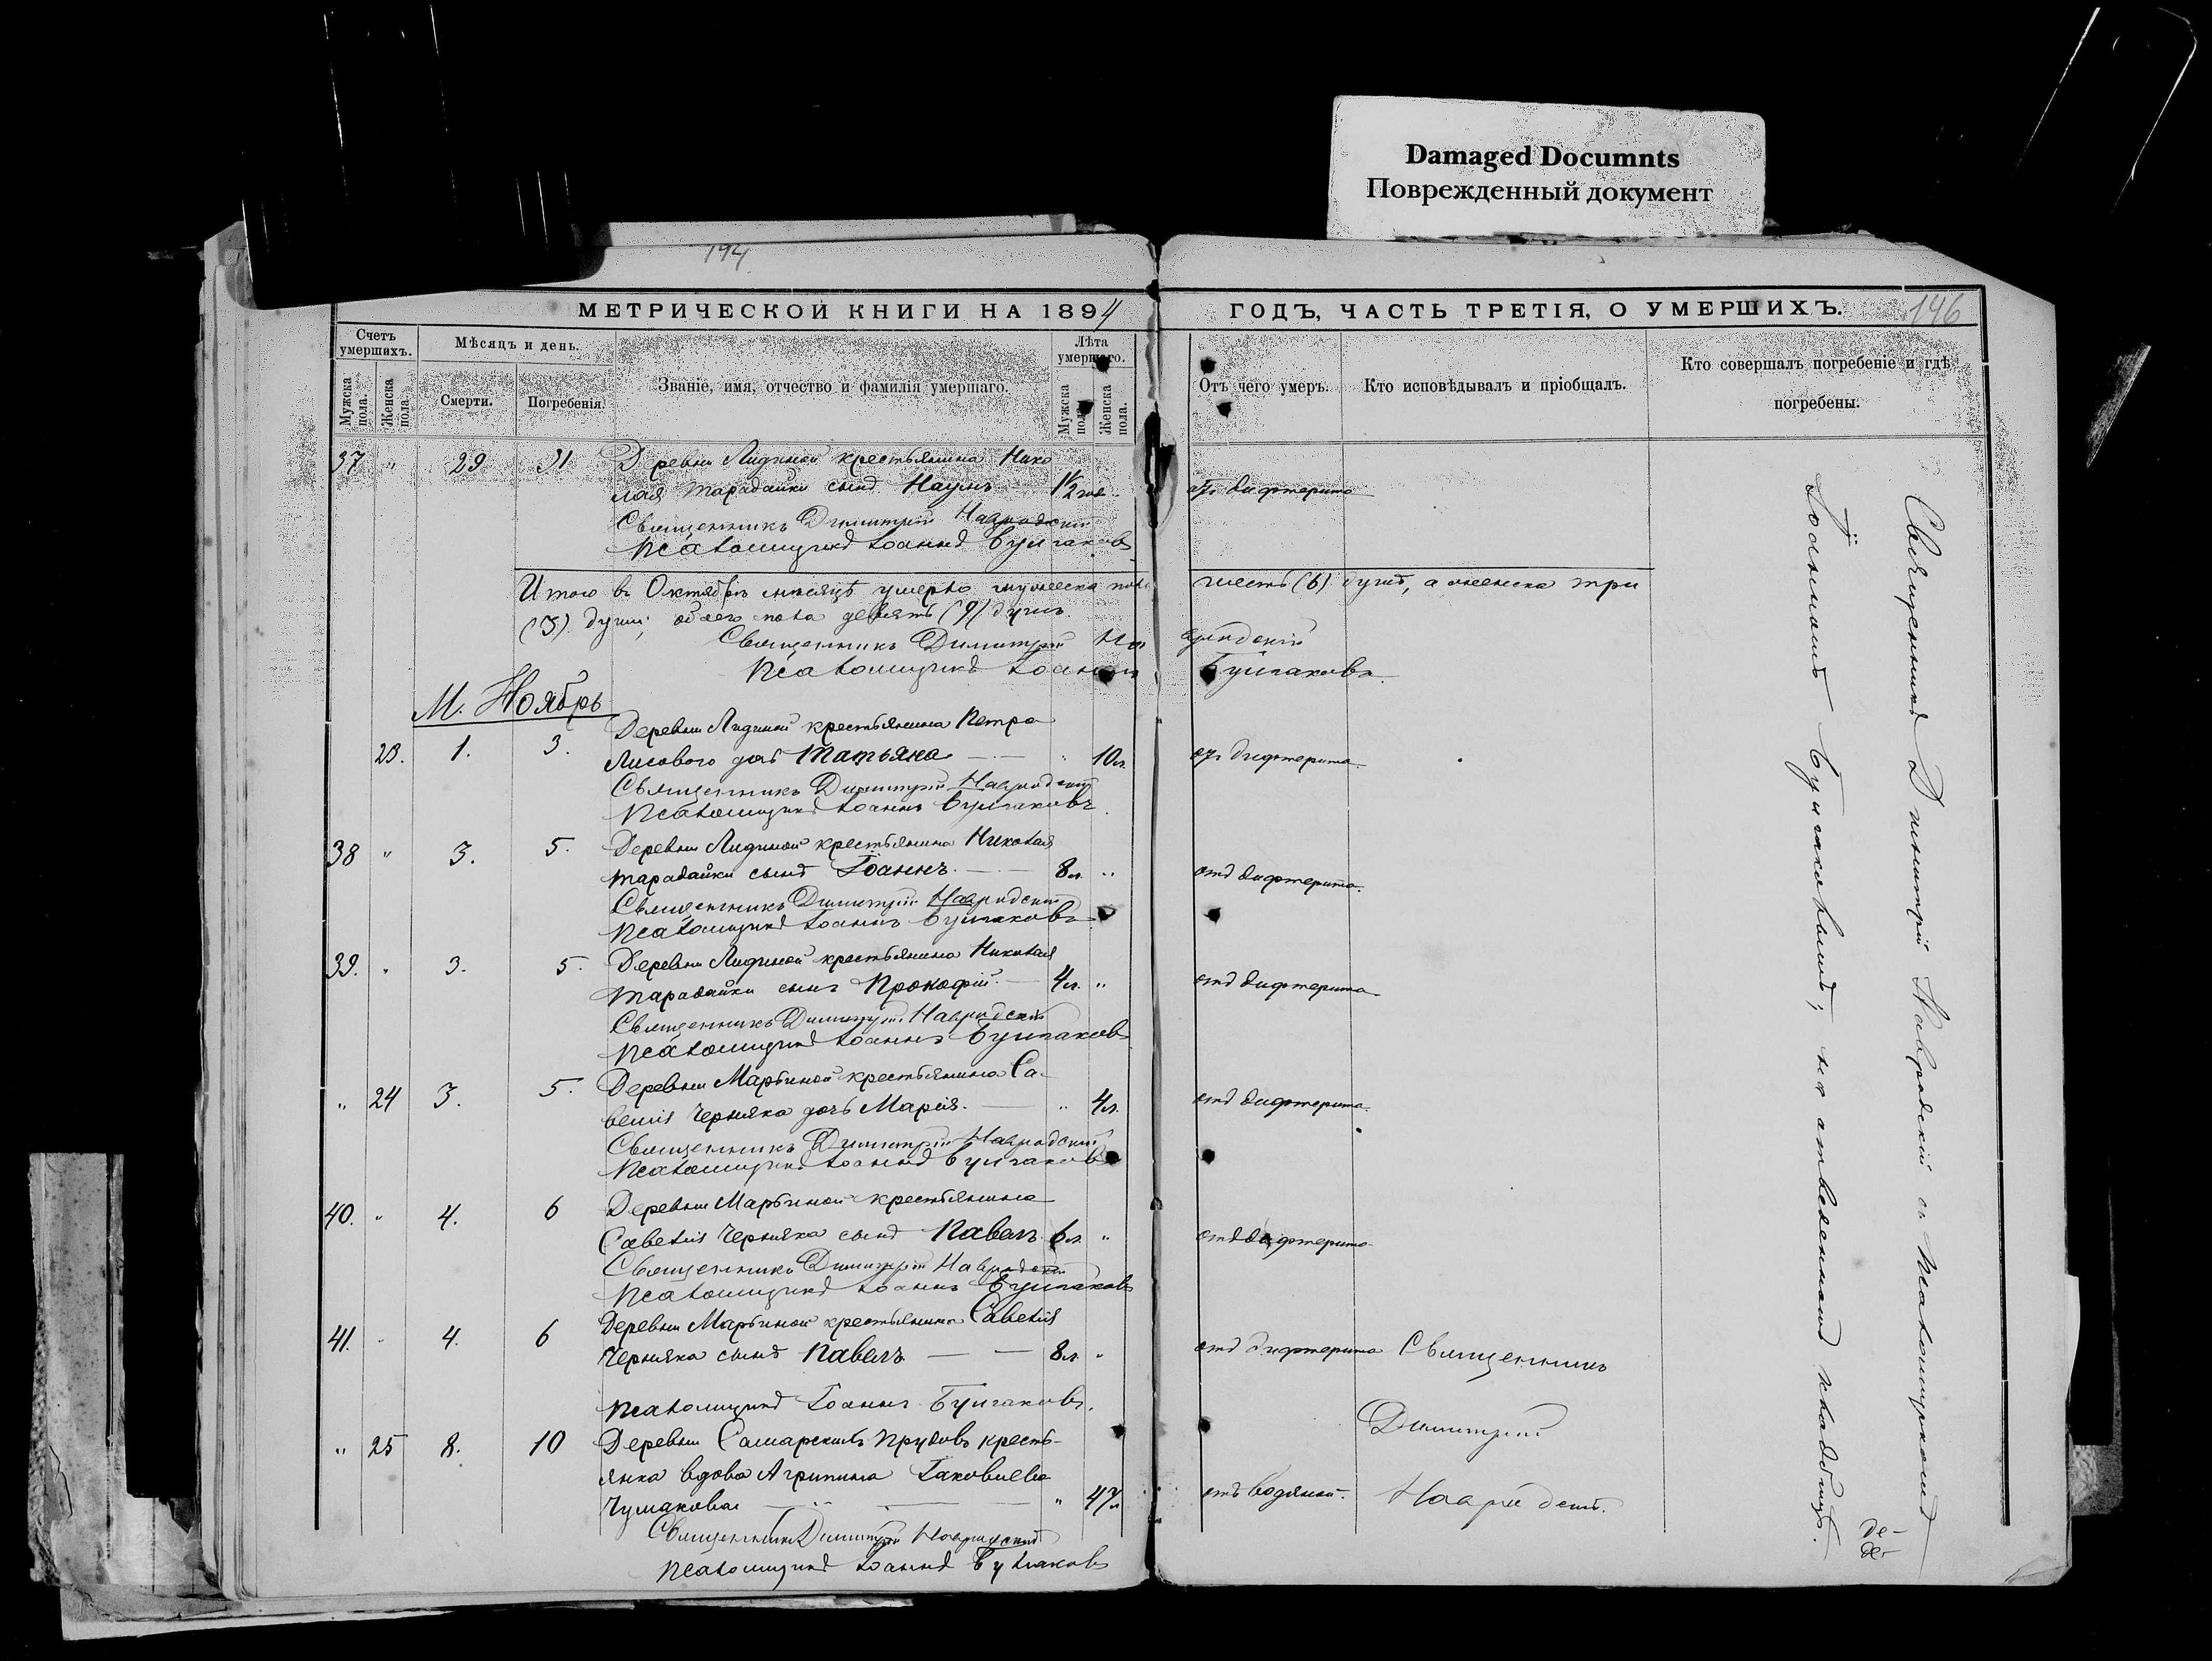 Damaged Documnts
Поврежденный документ
194
МЕТРИЧЕСКОЙ КНИГИ НА 1894
ГОДЪ, ЧАСТЬ ТРЕТІЯ, О УМЕРШИХЪ.
146
Счетъ умершихъ.
Мужска пола.
Женска пола.
Мѣсяцъ и день.
Смерти.
Погребенія.
Званіе, имя, отчество и фамилія умершаго.
Лѣта умершаго.
Мужска пола.
Женска пола.
Отъ чего умеръ.
Кто исповѣдывалъ и пріобщалъ.
Кто совершалъ погребеніе и гдѣ погребены.
37 " 29 31 Деревни Лидиной крестьянина Нико
лая Тарадайки сынъ Наумъ 1½ отъ дифтерита
Священникъ Димитрій Навродскій
Псаломщикъ Іоаннъ Булгаковъ
Итого въ Октябрѣ мѣсяцѣ умерло мужеска пола шесть (6) душъ, а женска три
(3) души; обоего пола девять (9) душъ.
Священникъ Димитрій Навродскій
Псаломщикъ Іоаннъ Булгаковъ.
М. Ноябрь
23. 1. 3. Деревни Лидиной крестьянина Петра
Лисового дочь Татьяна " 10 л. отъ дифтерита.
Священникъ Димитрій Навродскій
Псаломщикъ Іоаннъ Булгаковъ.
38 " 3. 5. Деревни Лидиной крестьянина Николая
Тарадайки сынъ Іоаннъ. 8 л. " отъ дифтерита.
Священникъ Димитрій Навродскій
Псаломщикъ Іоаннъ Булгаковъ
39. " 3. 5. Деревни Лидиной крестьянина Николая
Тарадайки сынъ Прокофій. 4 л. " отъ дифтерита
Священникъ Димитрій Навродскій
Псаломщикъ Іоаннъ Булгаковъ
" 24 3. 5. Деревни Марьиной крестьянина Са-
велія Черняка дочь Марія. " 4 л. отъ дифтерита.
Священникъ Димитрій Навродскій
Псаломщикъ Іоаннъ Булгаковъ
40. " 4. 6 Деревни Марьиной крестьянина
Савелія Черняка сынъ Павелъ 6 л. " отъ дифтерита
Священникъ Димитрій Навродскій
Псаломщикъ Іоаннъ Булгаковъ
41. " 4. 6 Деревни Марьиной крестьянина Савелія
Черняка сынъ Павелъ 8 л. " отъ дифтерита Священникъ
Псаломщикъ Іоаннъ Булгаковъ.
Димитрій
" 25 8. 10 Деревни Самарскихъ Прудовъ кресть-
янка вдова Агрипина Іаковлева
Чумакова " 47 л отъ водяной. Навродскій.
Священникъ Димитрій Навродскій
Псаломщикъ Іоаннъ Булгаковъ
Священникъ Димитрій Навродскій съ псаломщикомъ
Іоанномъ Булгаковымъ; на отведенномъ кладбищѣ.